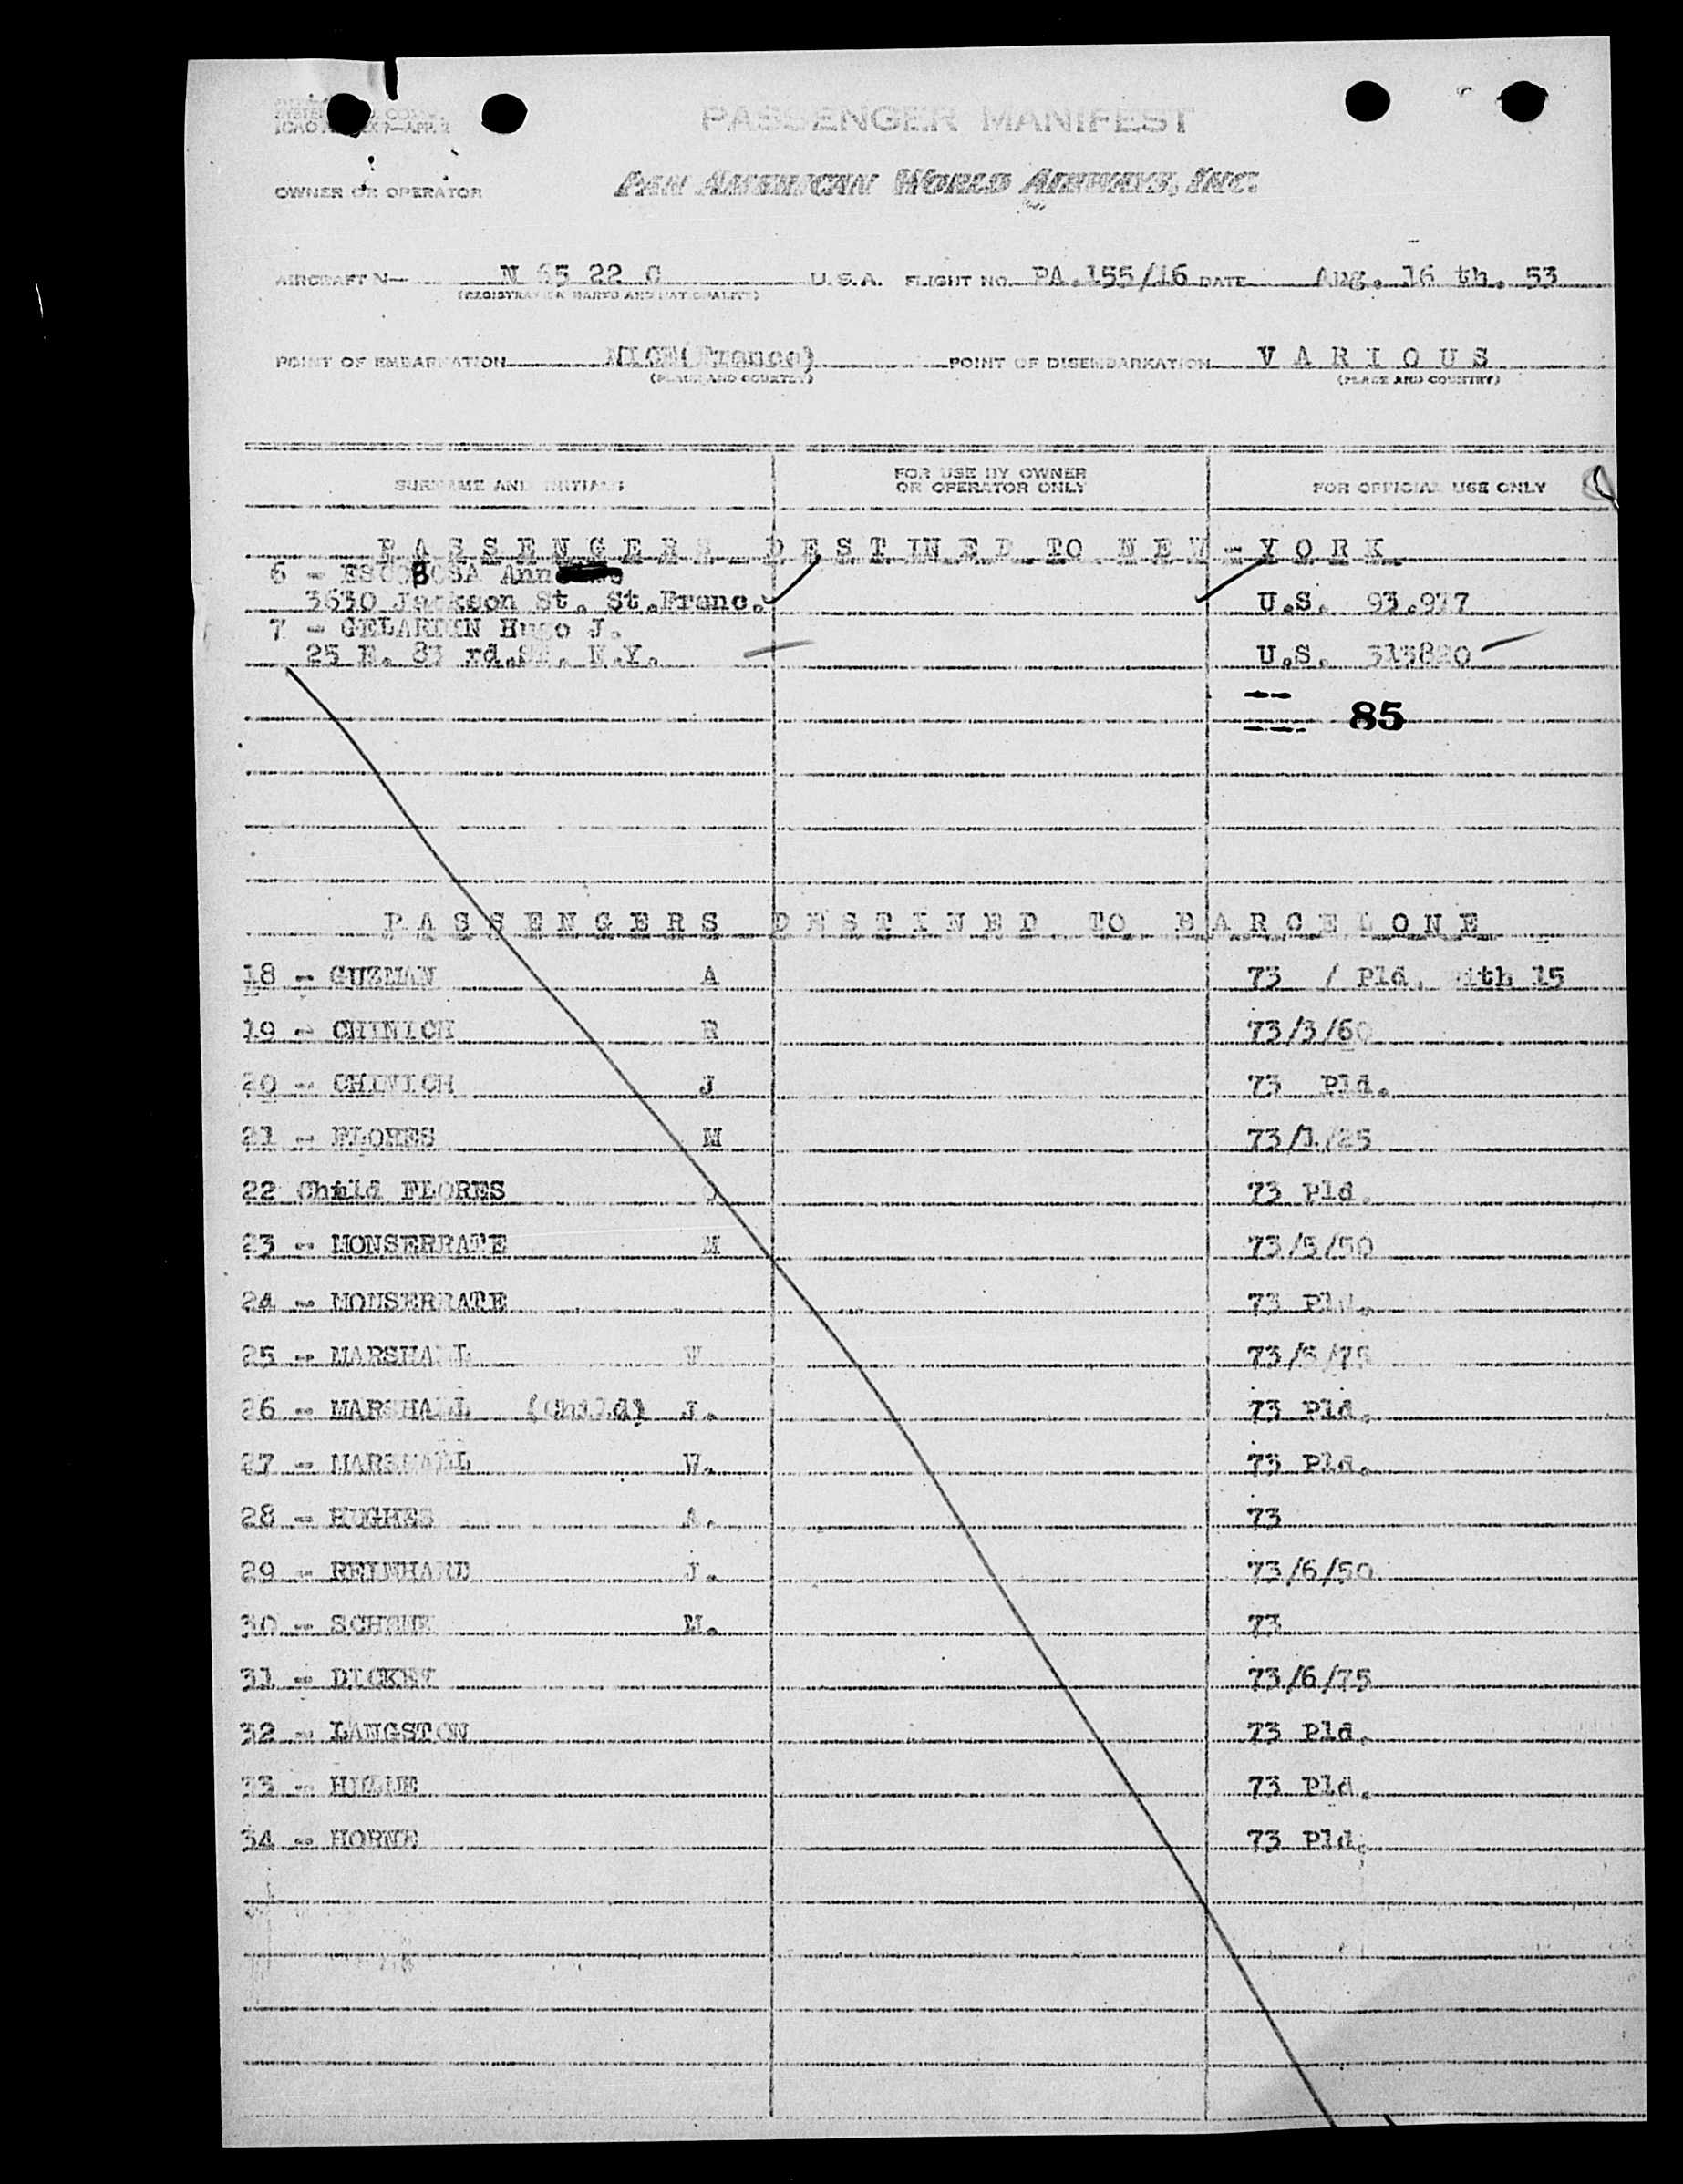 PASSENGER MANIFEST
OWNER OR OPERATOR
PAN AMERICAN WORLD AIRWAYS, INC.
AIRCRAFT N— N 65 22 C U.S.A. FLIGHT NO. PA.155/16 DATE Aug. 16 th. 53
(REGISTRATION MARKS AND NATIONALITY)
POINT OF EMBARKATION NICE(France) POINT OF DISEMBARKATION V A R I O U S
(PLACE AND COUNTRY) (PLACE AND COUNTRY)
SURNAME AND INITIALS FOR USE BY OWNER OR OPERATOR ONLY FOR OFFICIAL USE ONLY
P A S S E N G E R S D E S T I N E D TO N E W - Y O R K
6 - ESCOBOSA
3630 Jackson St. St.Franc. U.S. 93.937
7 - Hugo J.
25 E. 83 rd.St. N.Y. U.S. 313820
85
P A S S E N G E R S D E S T I N E D TO B A R C E L O N E
18 - GUZMAN A 73 / Pld. with 15
19 - CHINICH R 73/3/60
20 - CHINICH J 73 Pld.
21 - FLORES M 73/1/25
22 Child FLORES 73 Pld.
23 - MONSERRATE M 73/5/50
24 - MONSERRATE 73 Pld.
25 - MARSHALL 73/5/75
26 - MARSHALL (Child) J. 73 Pld.
27 - MARSHALL W. 73 Pld.
28 - HUGHES A. 73
29 - REINHARD J. 73/6/50
30 - M. 73
31 - DICKEY 73/6/75
32 - LANGSTON 73 Pld.
33 - 73 Pld.
34 - HORNE 73 Pld.